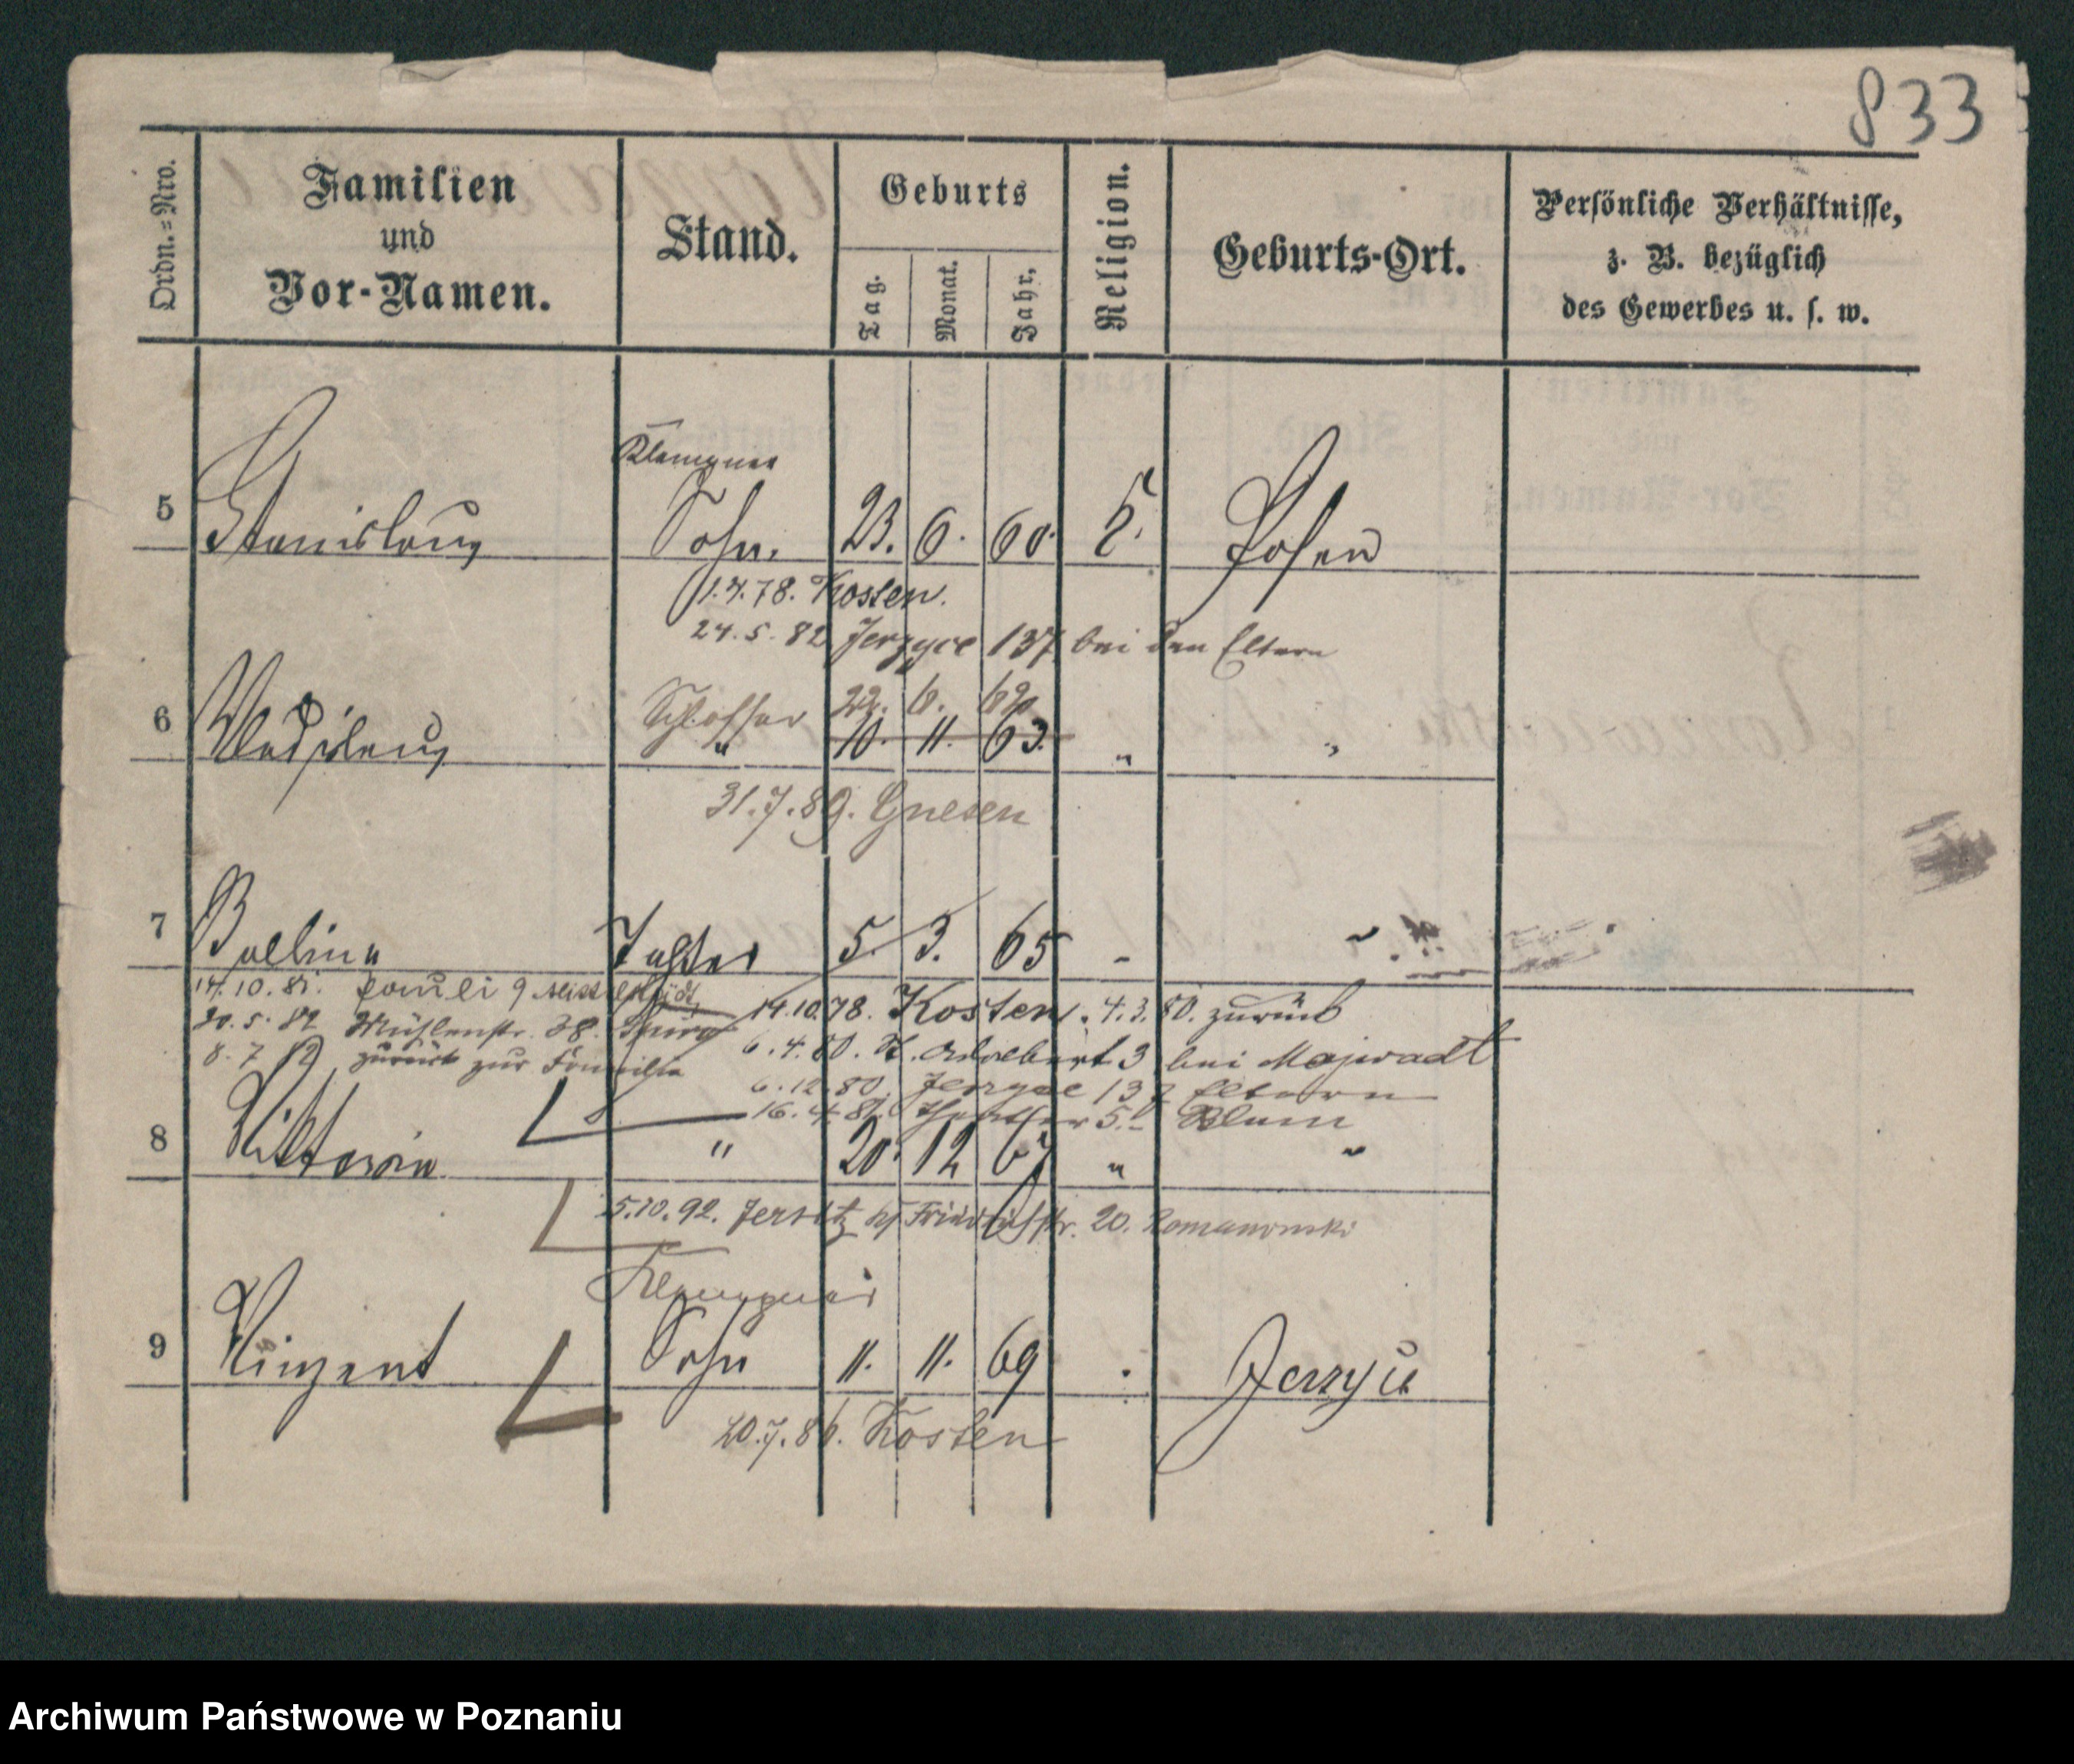 833
Ordn.=Nro.
Familien
und
Vor-Namen.
Stand.
Geburts
Tag.
Monat.
Jahr.
Religion.
Geburts-Ort.
Persönliche Verhältnisse,
z. B. bezüglich
des Gewerbes u. s. w.
Klempner
5 Stanislaus Sohn. 23. 6. 60. Posen
1.7.78. Kosten.
24.5.82 Jerzyce 137 bei den Eltern
Schlosser 22. 6. 62
6 Wladislaus " 10. 11. 63. " "
31.7.89. Gnesen
7 Paulina Tochter 5. 3. 65 - "
14.10.81. Pauli 9
14.10.78. Kosten. 4.3.80. zurück
20.5.82 Mühlenstr. 38.
6.4.80. St. Adalbert 3 bei Majwadt
8.7.82 zurück zur Familie
6.12.80. Jerzyce 137 Eltern
16.4.81. 5 - Blum
8 Viktoria " 20. 12 67 " "
5.10.92. Jersitz Friedrichstr. 20. Romanowski
Klempner
9 Vinzent Sohn 11. 11. 69 . Jerzyce
20.7.86. Kosten
Archiwum Państwowe w Poznaniu